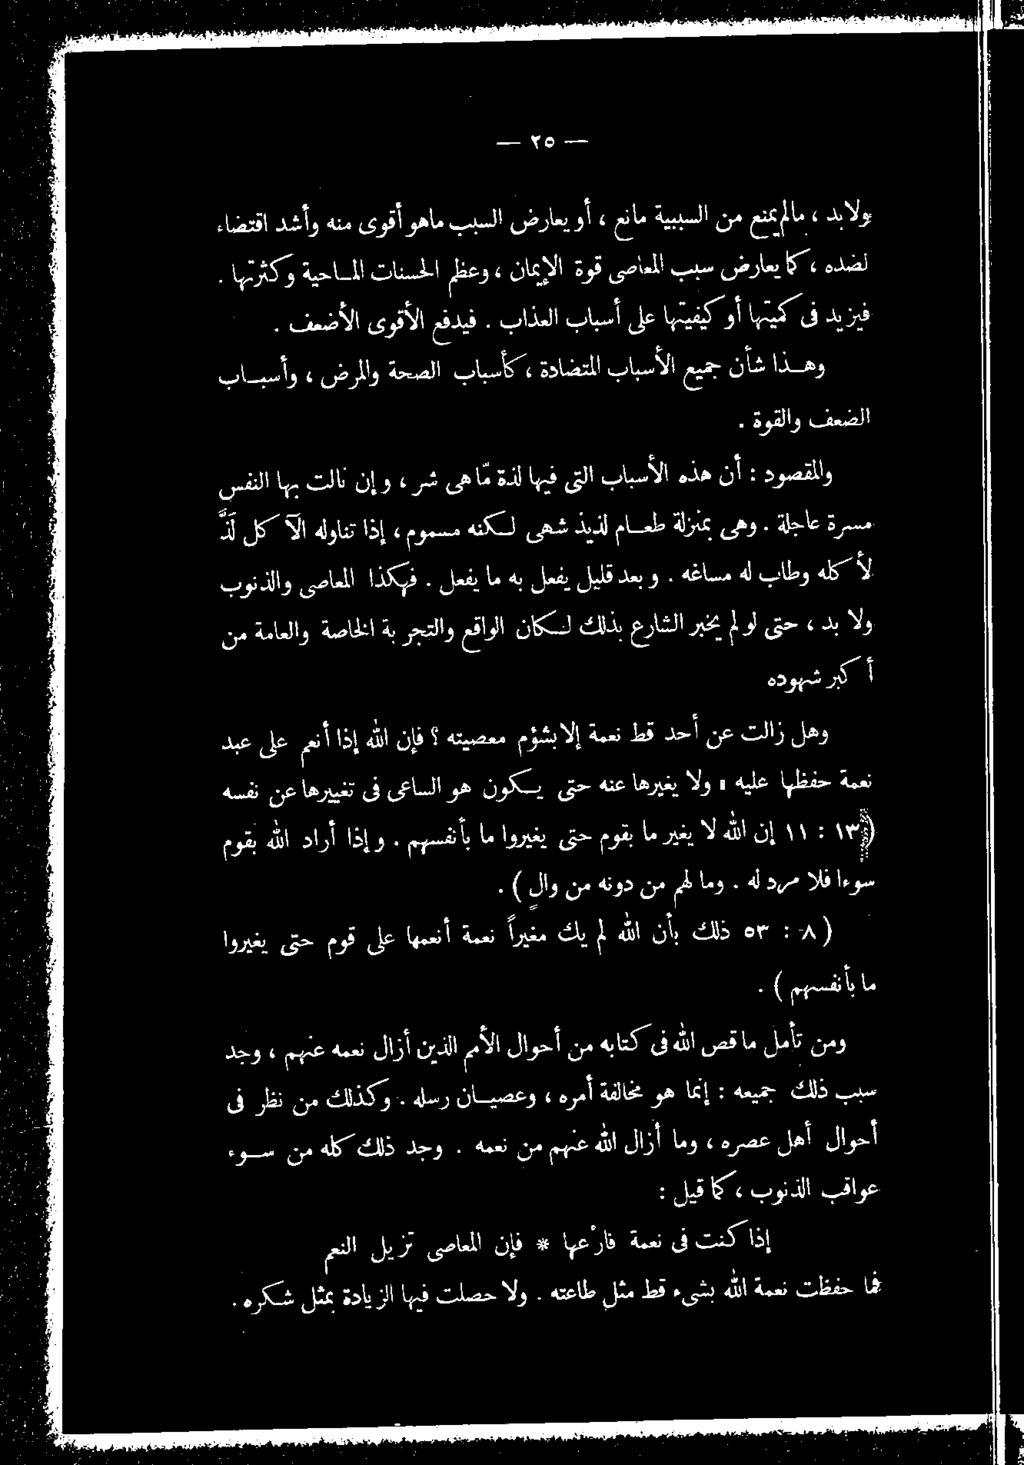 — ٢٥ —
ولابد ، مالم يمنع من السببية مانع ، أو يعارض السبب ماهو أقوى منه وأشد اقتضاء
لضده ، كما يعارض سبب المعاصى قوة الإيمان ، وعظم الحسنات الماحية وكثرتها .
فيزيد فى كميتها أو كيفيتها على أسباب العذاب . فيدفع الأقوى الأضعف .
وهذا شأن جميع الأسباب المتضادة ، كأسباب الصحة والمرض ، وأسباب
الضعف والقوة .
والمقصود : أن هذه الأسباب التى فيها لذة مّا هى شر ، وإن نالت بها النفس
مسرة عاجلة . وهى بمنزلة طعام لذيذ شهى لكنه مسموم ، إذا تناوله الآكل لَذَّ
لأكله وطاب له مساغه . وبعد قليل يفعل به ما يفعل . فهكذا المعاصى والذنوب
ولا بد ، حتى لو لم يخبر الشارع بذلك لكان الواقع والتجربة الخاصة والعامة من
أكبر شهوده
وهل زالت عن أحد قط نعمة إلا بشؤم معصيته ؟ فإن الله إذا أنعم على عبد
نعمة حفظها عليه ، ولا يغيرها عنه حتى يكون هو الساعى فى تغييرها عن نفسه
( ١٣ : ١١ إن الله لا يغير ما بقوم حتى يغيروا ما بأنفسهم . وإذا أراد الله بقوم
سوءا فلا مرد له . وما لهم من دونه من والٍ ) .
( ٨ : ٥٣ ذلك بأن الله لم يك مغيراً نعمة أنعمها على قوم حتى يغيروا
ما بأنفسهم ) .
ومن تأمل ما قص الله فى كتابه من أحوال الأمم الذين أزال نعمه عنهم ، وجد
سبب ذلك جميعه : إنما هو مخالفة أمره ، وعصيان رسله . وكذلك من نظر فى
أحوال أهل عصره ، وما أزال الله عنهم من نعمه . وجد ذلك كله من سوء
عواقب الذنوب ، كما قيل :
إذا كنت فى نعمة فارْعها * فإن المعاصى تزيل النعم
فما حفظت نعمة الله بشىء قط مثل طاعته . ولا حصلت فيها الزيادة بمثل شكره .